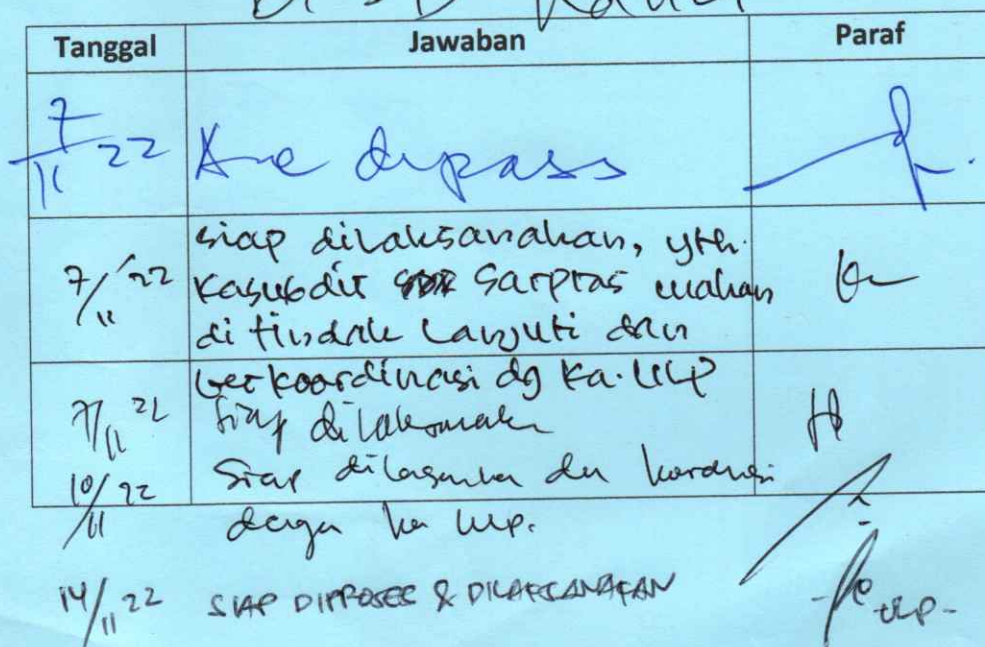 Tanggal Jawaban Paraf
7/11 22 Acc diproses
siap dilaksanakan, yth.
7/11 '22 Kasubdit Sarpras mohon
di tindak lanjuti dan
berkoordinasi dg Ka. ULP
7/11 22 Siap dilaksanakan
10/11 22 Siap dilaksanakan dan kordinasi
dengan ka ulp.
14/11 22 SIAP DIPROSES & DILAKSANAKAN
ULP-